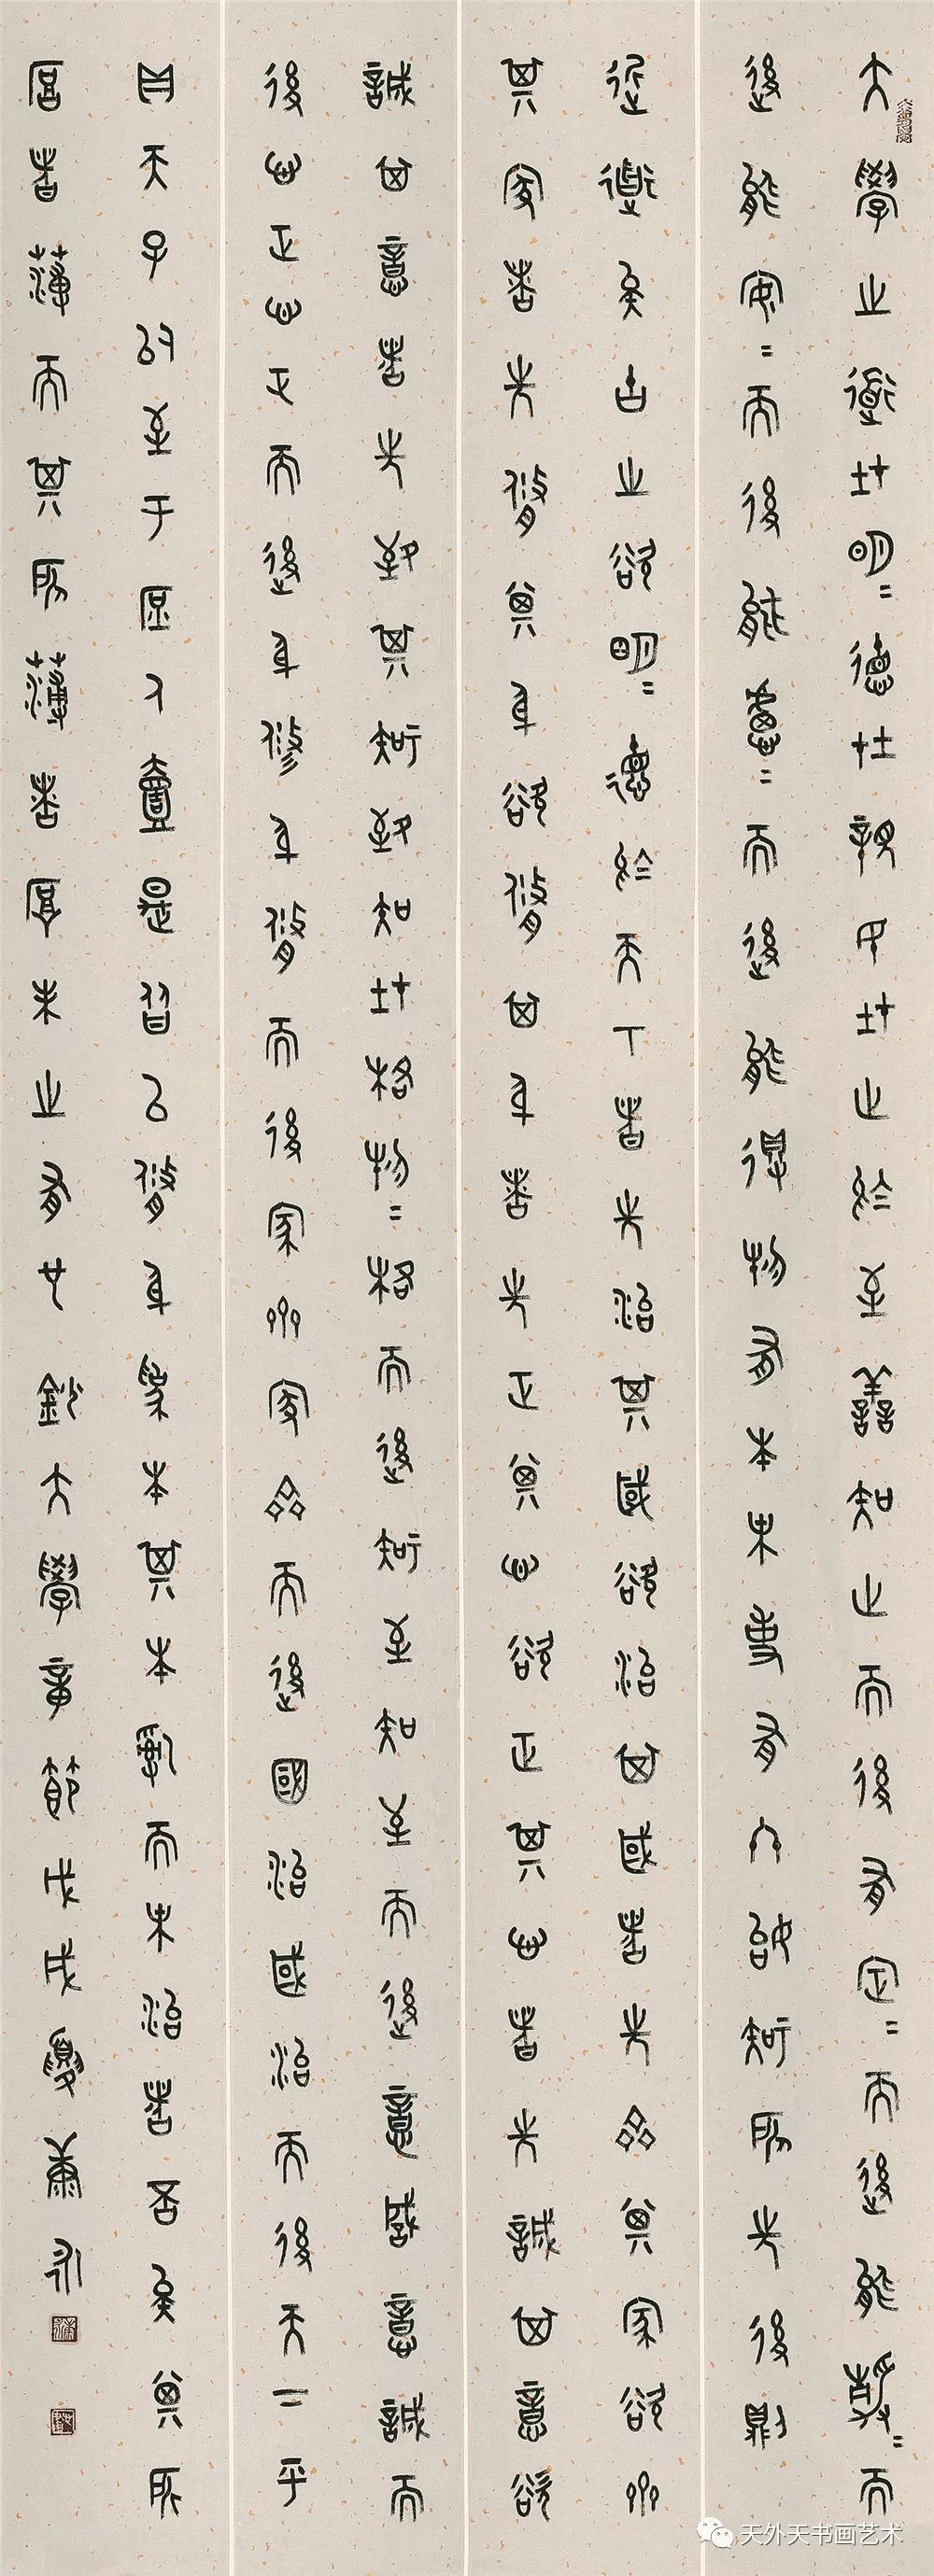 大學之道在明=德在親民在止於至善知止而後有定=而後能靜=而
後能安=而後能慮=而後能得物有本末事有終始知所先後則
近道矣古之欲明=德於天下者先治其國欲治其國者先齊其家欲齊
其家者先脩其身欲脩其身者先正其心欲正其心者先誠其意欲
誠其意者先致其知致知在格物=格而後知至知至而後意誠意誠而
後心正心正而後身脩身脩而後家齊家齊而後國治國治而後天下平
自天子以至于庶人壹是皆以脩身爲本其本亂而末治者否矣其所
厚者薄而其所薄者厚未之有也鈔大學章節戊戌夏蕭永
天外天书画艺术